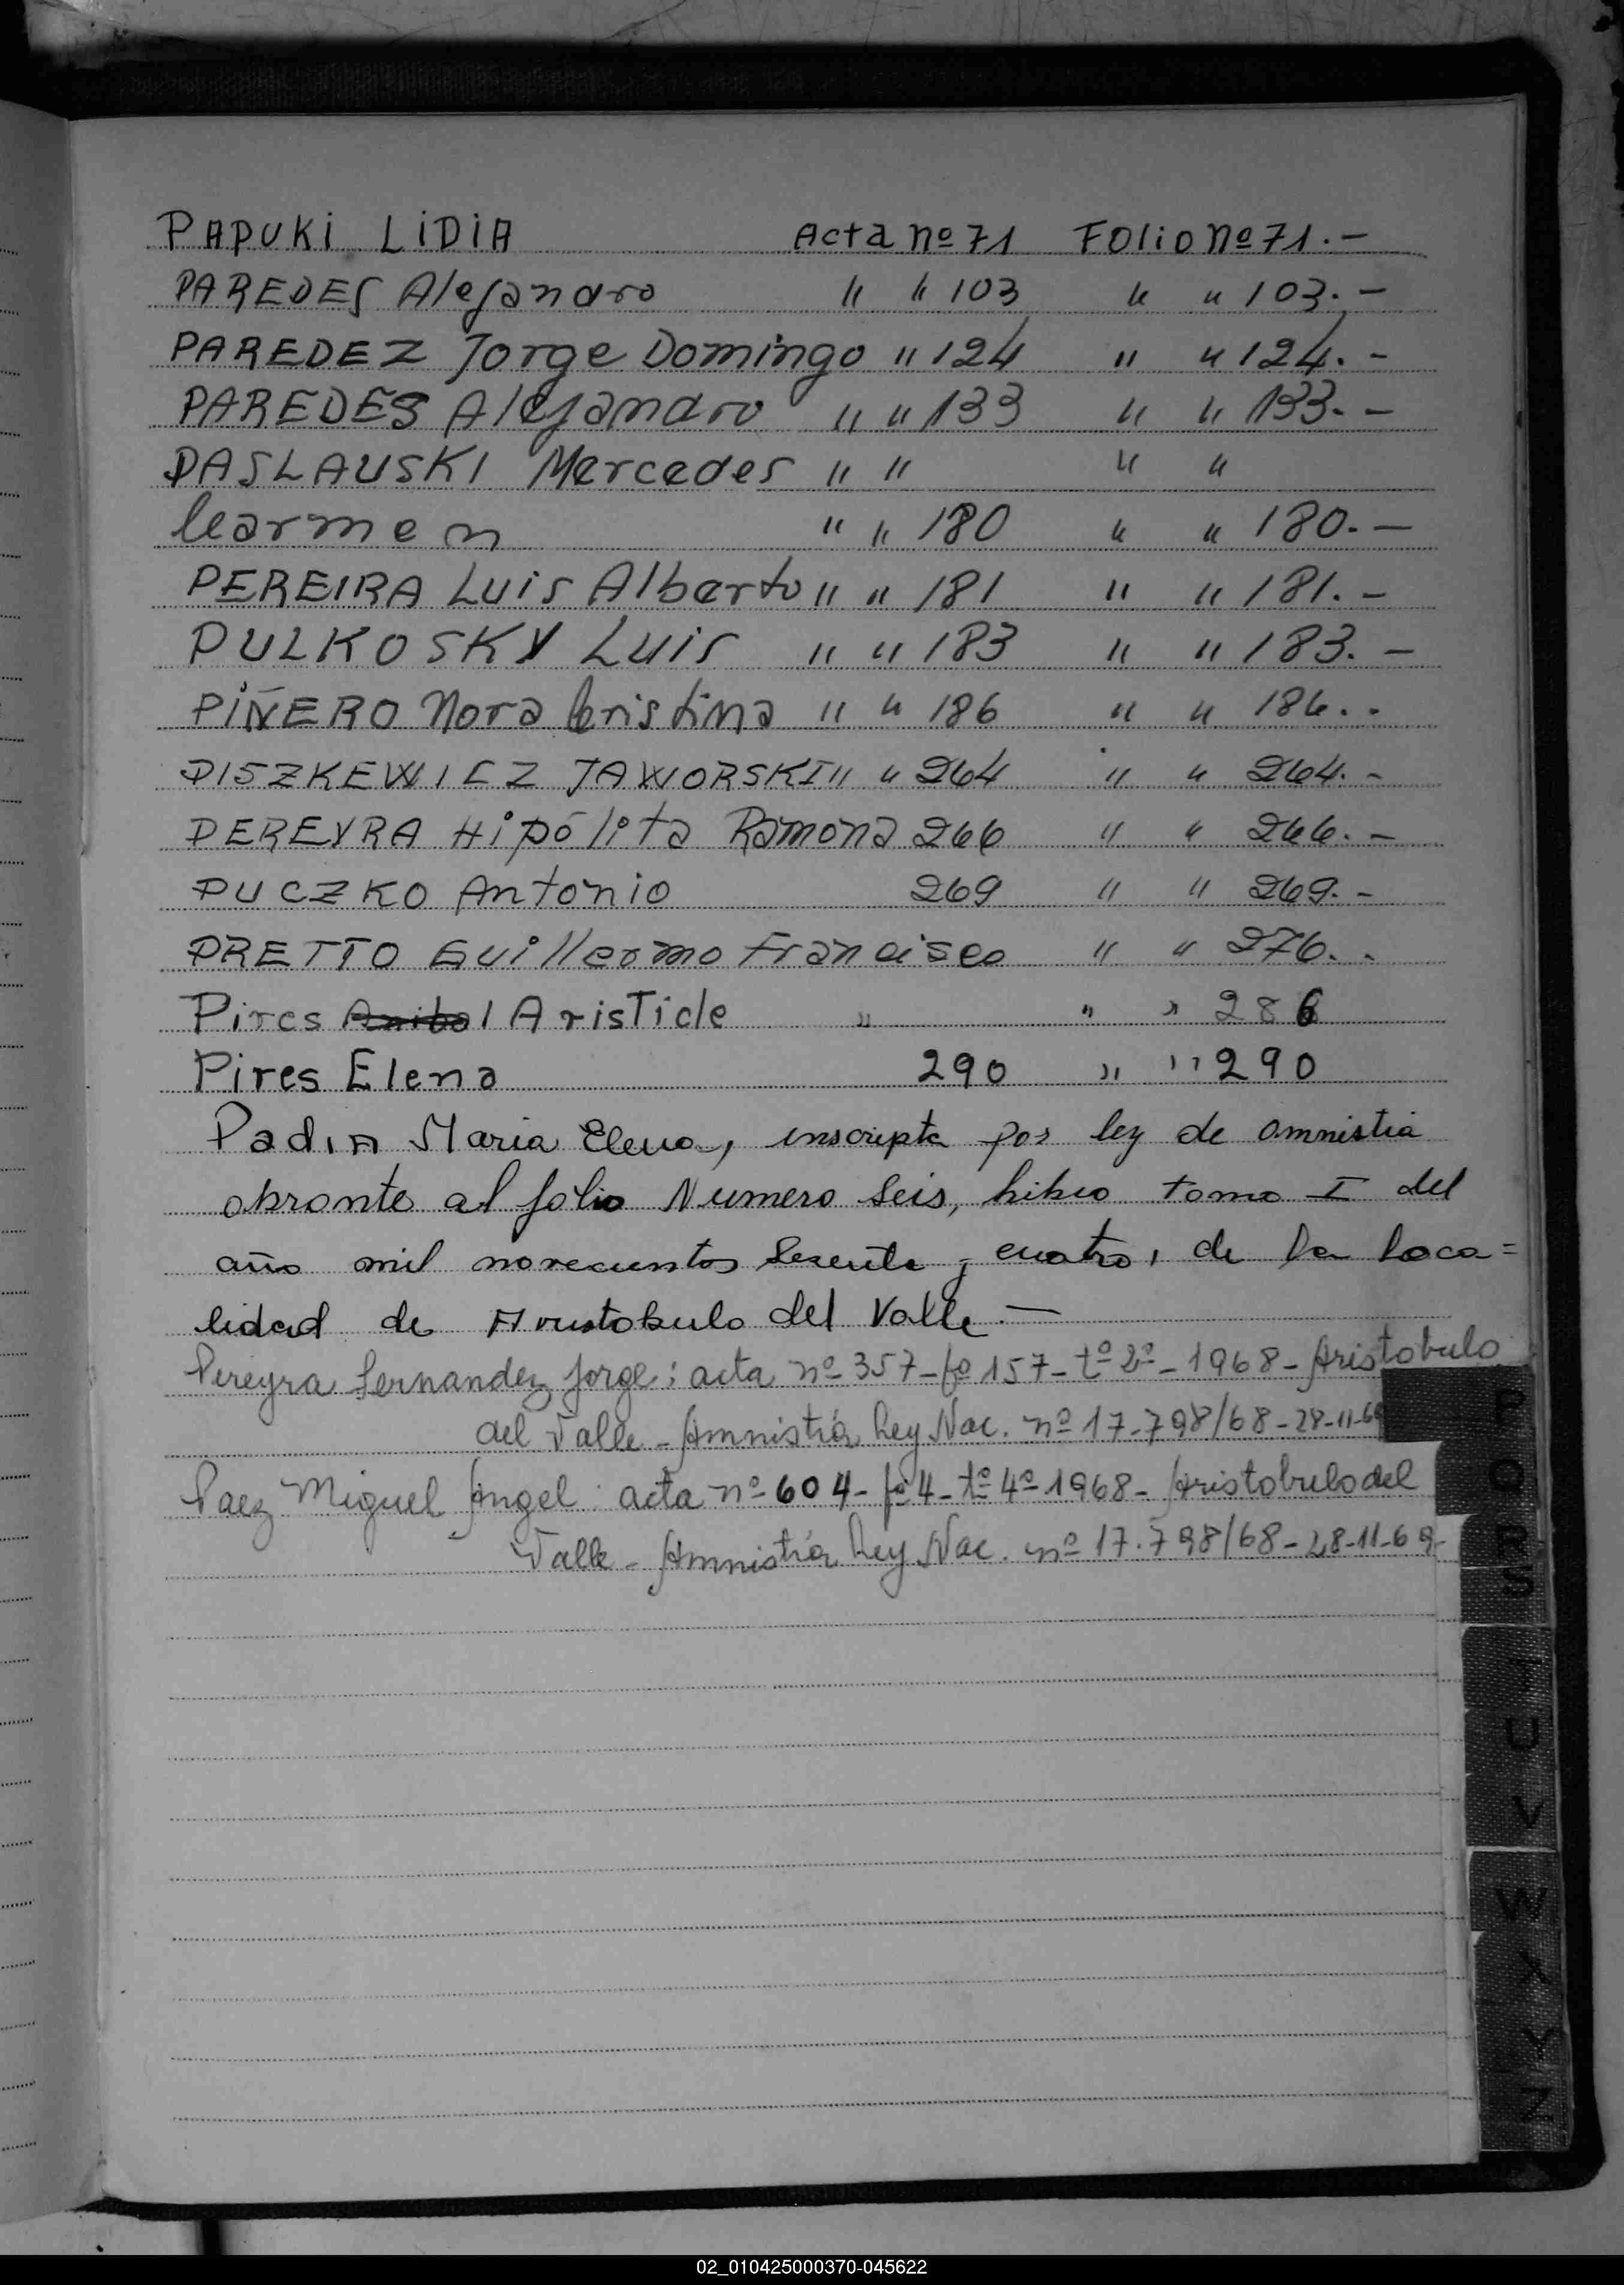 PAPUKI LIDIA Acta nº 71 Folio nº 71.-
PAREDES Alejandro " " 103 " " 103.-
PAREDEZ Jorge Domingo " 124 " " 124.-
PAREDES Alejandro " " 133 " " 133.-
PASLAUSKI Mercedes " " " "
Carmen " " 180 " " 180.-
PEREIRA Luis Alberto " " 181 " " 181.-
PULKOSKY Luis " " 183 " " 183.-
PIÑERO Nora Cristina " " 186 " " 186..
PISZKEWICZ JAWORSKI " " 264 " " 264.-
PEREYRA Hipólita Ramona 266 " " 266.-
PUCZKO Antonio 269 " " 269.-
PRETTO Guillermo Francisco " " 276..
Pires Anibal Aristide " " " 286
Pires Elena 290 " " 290
Padin Maria Elena, inscripta por ley de amnistia
obrante al folio Numero Seis, libro tomo I del
año mil novecientos sesenta y cuatro, de la loca=
lidad de Aristobulo del Valle.-
Pereyra Fernandez Jorge: acta nº 357-fº 157-tº 2º-1968-Aristobulo
del Valle-Amnistía Ley Nac. nº 17.798/68-28-11-69
Paez Miguel Angel: acta nº 604-fº 4-tº 4º 1968-Aristobulo del
Valle-Amnistía Ley Nac. nº 17.798/68-28-11-69-
P
Q
R
S
T
U
V
W
X
Y
Z
02_010425000370-045622